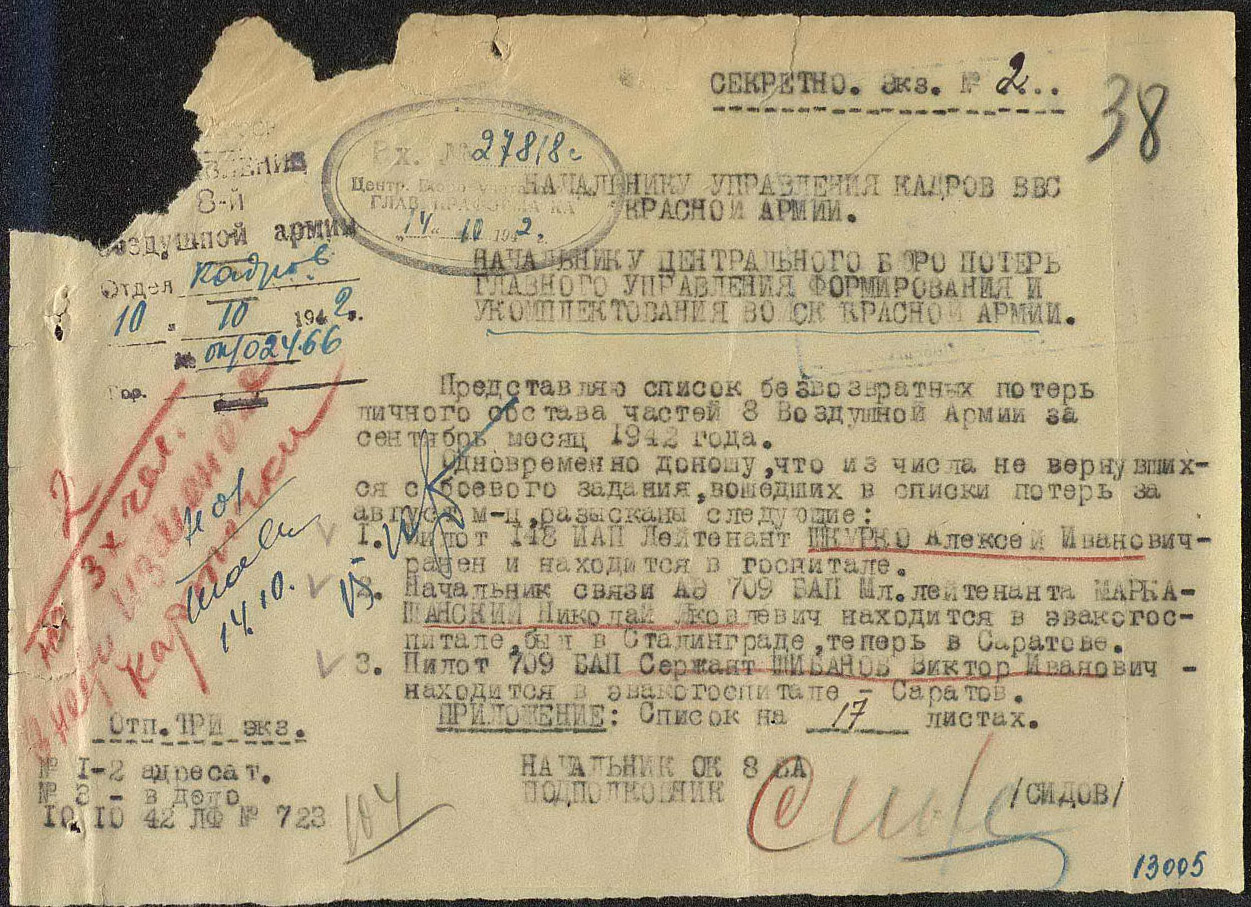 СЕКРЕТНО. Экз. № 2..
38
Вх. № 27818с
Центр. Бюро
"14" 10 1942г.
8-й
Воздушной армии
Отдел кадров
10 " 10 1942г.
№ оп/02466
Гор.
НАЧАЛЬНИКУ УПРАВЛЕНИЯ КАДРОВ ВВС
КРАСНОЙ АРМИИ.
НАЧАЛЬНИКУ ЦЕНТРАЛЬНОГО БЮРО ПОТЕРЬ
ГЛАВНОГО УПРАВЛЕНИЯ ФОРМИРОВАНИЯ И
УКОМПЛЕКТОВАНИЯ ВОЙСК КРАСНОЙ АРМИИ.
Представляю список безвозвратных потерь
личного состава частей 8 Воздушной Армии за
сентябрь месяц 1942 года.
Одновременно доношу,что из числа не вернувших-
ся с боевого задания,вошедших в списки потерь за
август м-ц,разысканы следующие:
1. Пилот 148 ИАП Лейтенант ШКУРКО Алексей Иванович-
ранен и находится в госпитале.
2. Начальник связи АЭ 709 БАП Мл.лейтенанта МАРКА-
ШАНСКИЙ Николай Яковлевич находится в эвакогос-
питале,был в Сталинграде,теперь в Саратове.
3. Пилот 709 БАП Сержант ШИБАНОВ Виктор Иванович -
находится в эвакогоспитале - Саратов.
ПРИЛОЖЕНИЕ: Список на 17 листах.
2
на 3х чел.
изменение
карточки
14.10.
Отп.ТРИ экз.
№ 1-2 адресат.
№ 3 - в дело
10 10 42 ЛФ № 723
104
НАЧАЛЬНИК ОК 8 ВА
ПОДПОЛКОВНИК /СИДОВ/
13005